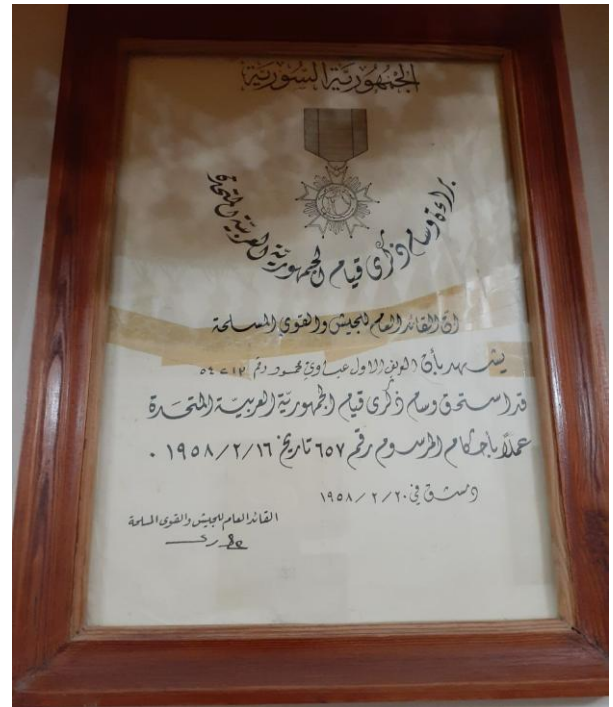 الجمهورية السورية
براءة وسام ذكرى قيام الجمهورية العربية المتحدة
ان القائد العام للجيش والقوى المسلحة
يشهد بأن العريف الاول محمود رقم
قد استحق وسام ذكرى قيام الجمهورية العربية المتحدة
عملاً باحكام المرسوم رقم ٦٥٧ تاريخ ١٩٥٨/٢/١٦ .
دمشق في ١٩٥٨/٢/٢٠
القائد العام للجيش والقوى المسلحة